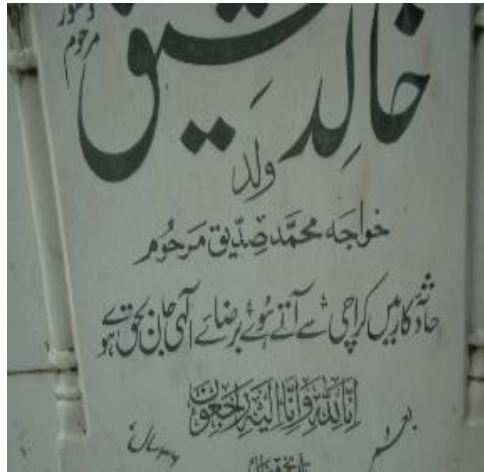 مرحوم
خالد
ولد
خواجہ محمد صدیق مرحوم
حادثہ کار میں کراچی سے آتے ہوئے برضائے الٰہی جاں بحق ہوئے
اِنَّا لِلّٰہِ وَاِنَّا اِلَیْہِ رَاجِعُوْنَ
بعمر ۳۶ سال